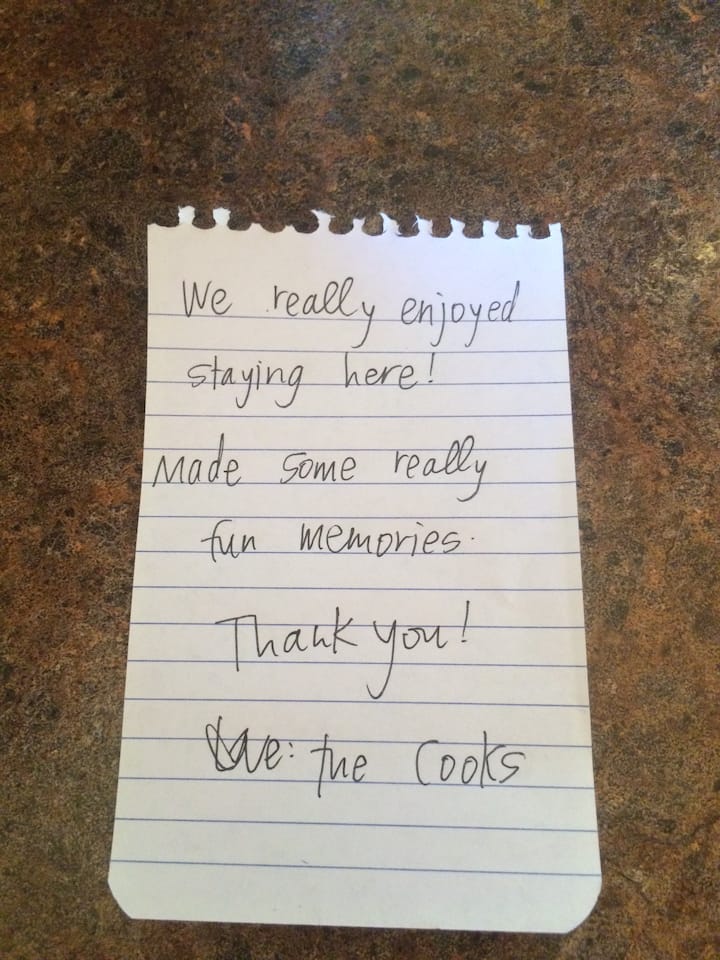 We really enjoyed
staying here!
Made some really
fun memories.
Thank you!
Love: the Cooks